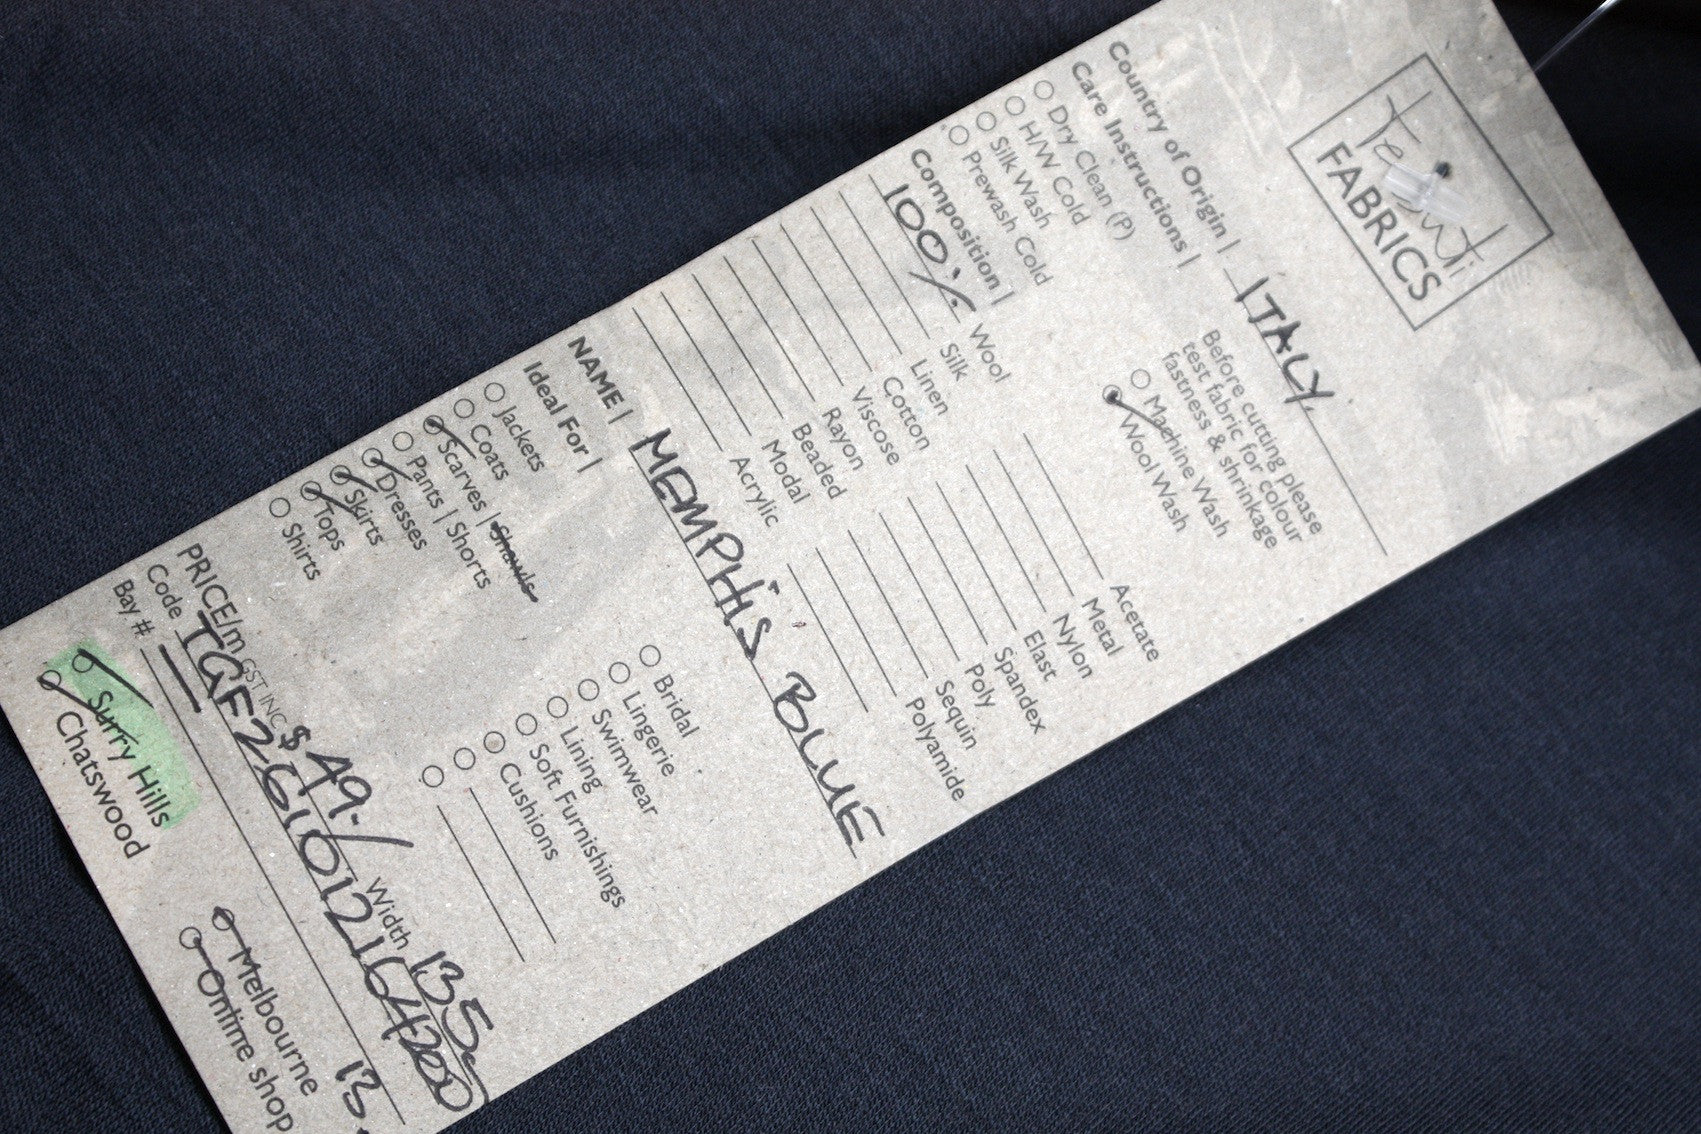 Tessuti
FABRICS
Country of Origin | ITALY
Care Instructions |
Dry Clean (P)
H/W Cold
Silk Wash
Prewash Cold
Before cutting please
test fabric for colour
fastness & shrinkage
Machine Wash
Wool Wash
Composition |
100% Wool
Silk
Linen
Cotton
Viscose
Rayon
Beaded
Modal
Acrylic
Acetate
Metal
Nylon
Elast
Spandex
Poly
Sequin
Polyamide
NAME | MEMPHIS BLUE
Ideal For |
Jackets
Coats
Scarves | Shawls
Pants | Shorts
Dresses
Skirts
Tops
Shirts
Bridal
Lingerie
Swimwear
Lining
Soft Furnishings
Cushions
PRICE/m GST INC $49./ Width 135
Code TGF261012164200
Bay # 13
Surry Hills
Chatswood
Melbourne
Online shop